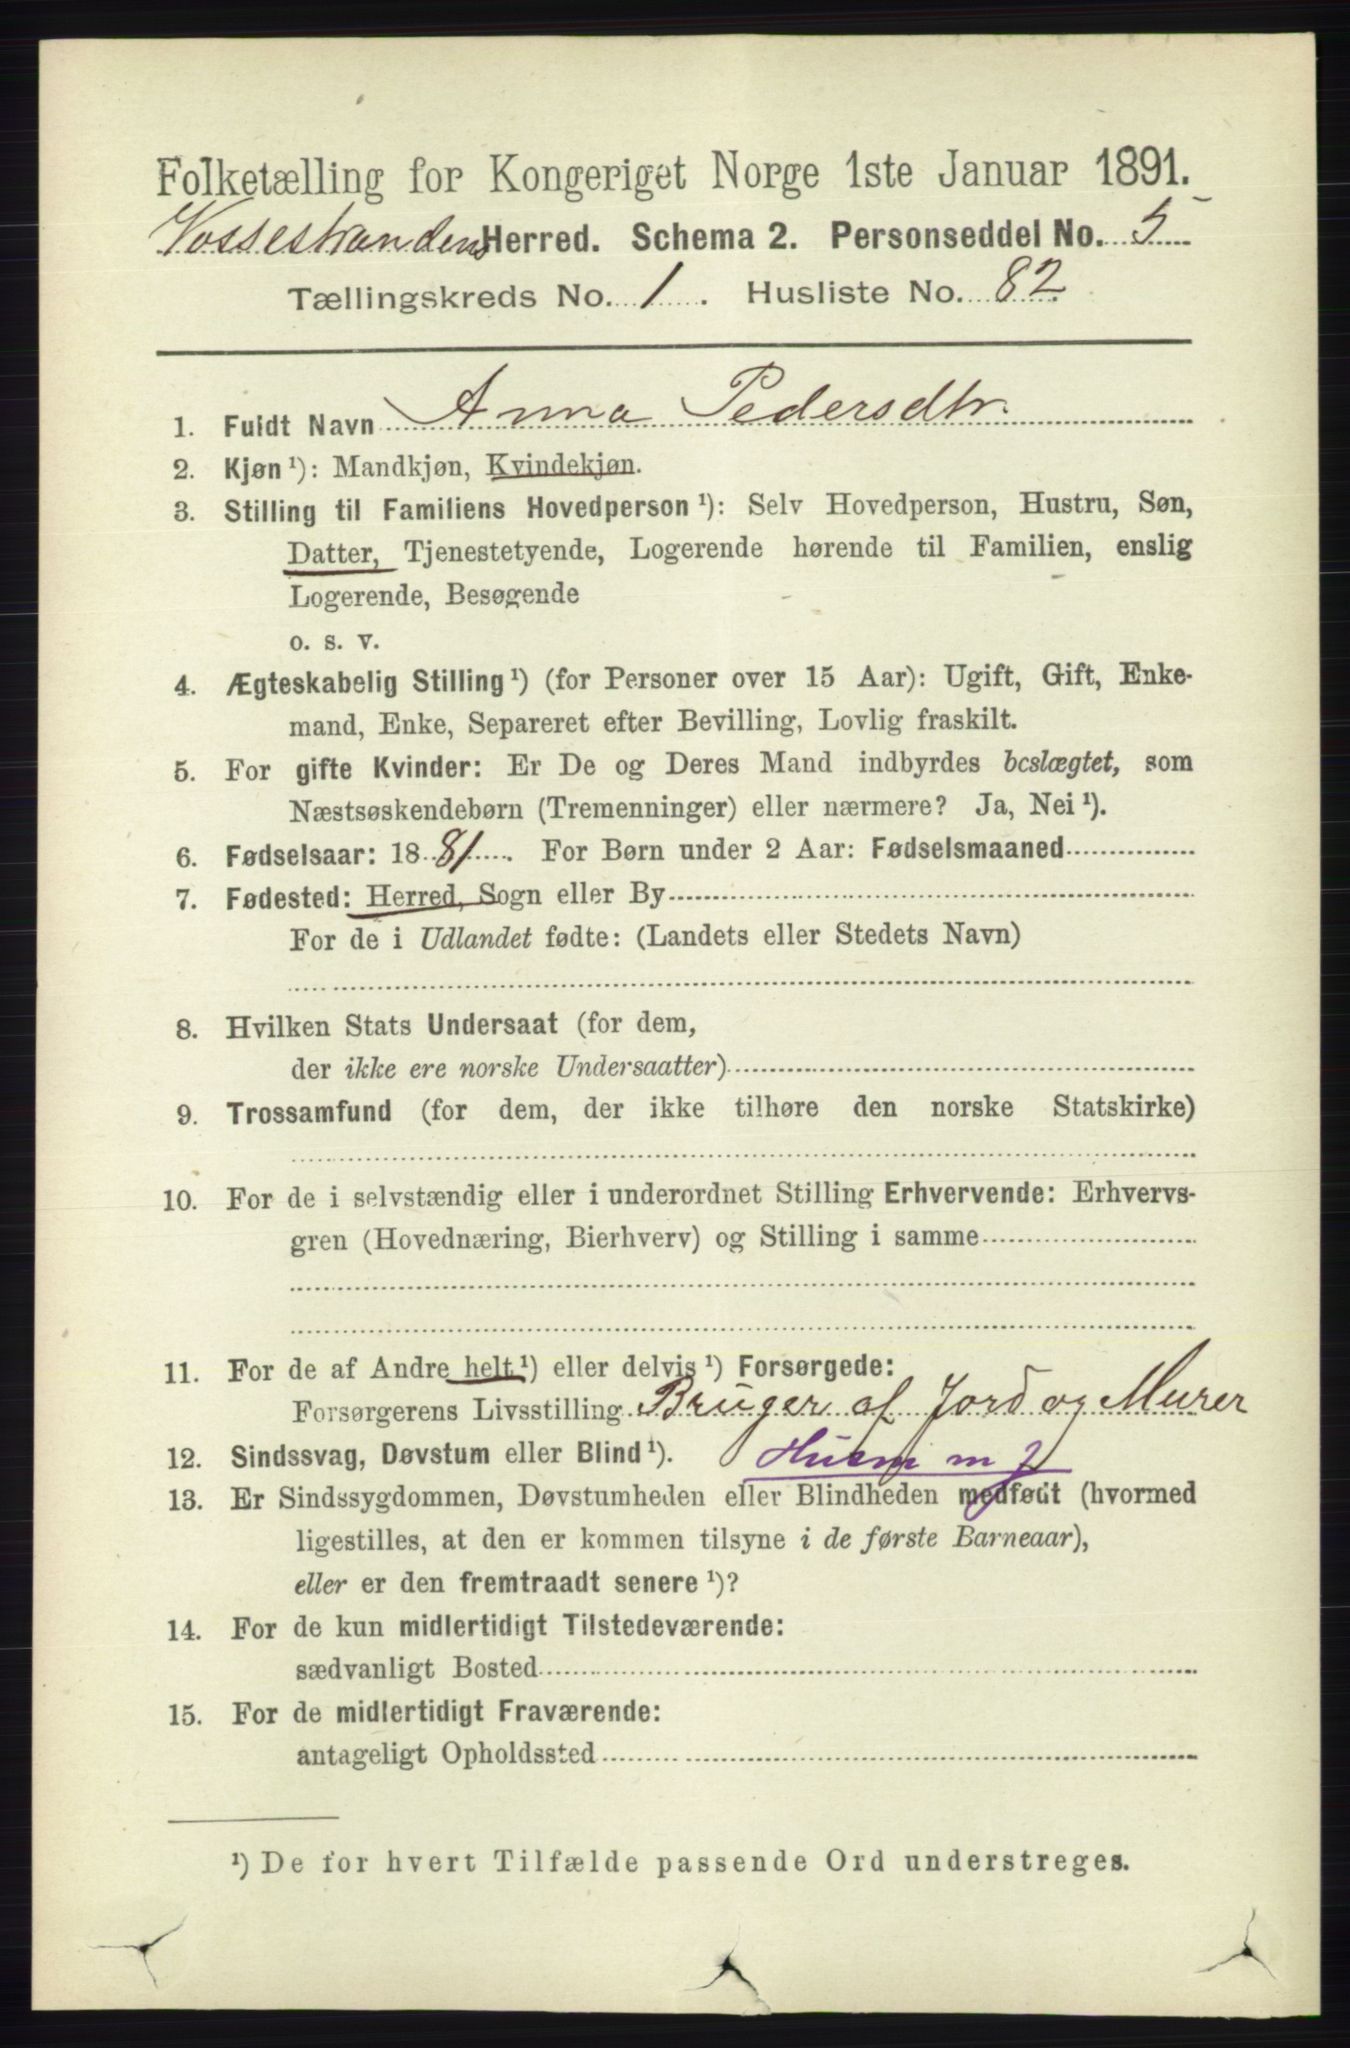 Folketælling for Kongeriget Norge 1ste Januar 1891.
Vossestrandens Herred. Schema 2. Personseddel No. 5
Tællingskreds No. 1. Husliste No. 82.
1. Fuldt Navn Anna Pedersdtr.
2. Kjøn ¹): Mandkjøn, Kvindekjøn.
3. Stilling til Familiens Hovedperson ¹): Selv Hovedperson, Hustru, Søn,
Datter, Tjenestetyende, Logerende hørende til Familien, enslig
Logerende, Besøgende
o. s. v.
4. Ægteskabelig Stilling ¹) (for Personer over 15 Aar): Ugift, Gift, Enke-
mand, Enke, Separeret efter Bevilling, Lovlig fraskilt.
5. For gifte Kvinder: Er De og Deres Mand indbyrdes beslægtet, som
Næstsøskendebørn (Tremenninger) eller nærmere? Ja, Nei ¹).
6. Fødselsaar: 1881. For Børn under 2 Aar: Fødselsmaaned
7. Fødested: Herred, Sogn eller By
For de i Udlandet fødte: (Landets eller Stedets Navn)
8. Hvilken Stats Undersaat (for dem,
der ikke ere norske Undersaatter)
9. Trossamfund (for dem, der ikke tilhøre den norske Statskirke)
10. For de i selvstændig eller i underordnet Stilling Erhvervende: Erhvervs-
gren (Hovednæring, Bierhverv) og Stilling i samme
11. For de af Andre helt ¹) eller delvis ¹) Forsørgede:
Forsørgerens Livsstilling Bruger af Jord og Murer
12. Sindssvag, Døvstum eller Blind ¹). Husm m J
13. Er Sindssygdommen, Døvstumheden eller Blindheden medfødt (hvormed
ligestilles, at den er kommen tilsyne i de første Barneaar),
eller er den fremtraadt senere ¹)?
14. For de kun midlertidigt Tilstedeværende:
sædvanligt Bosted
15. For de midlertidigt Fraværende:
antageligt Opholdssted
¹) De for hvert Tilfælde passende Ord understreges.